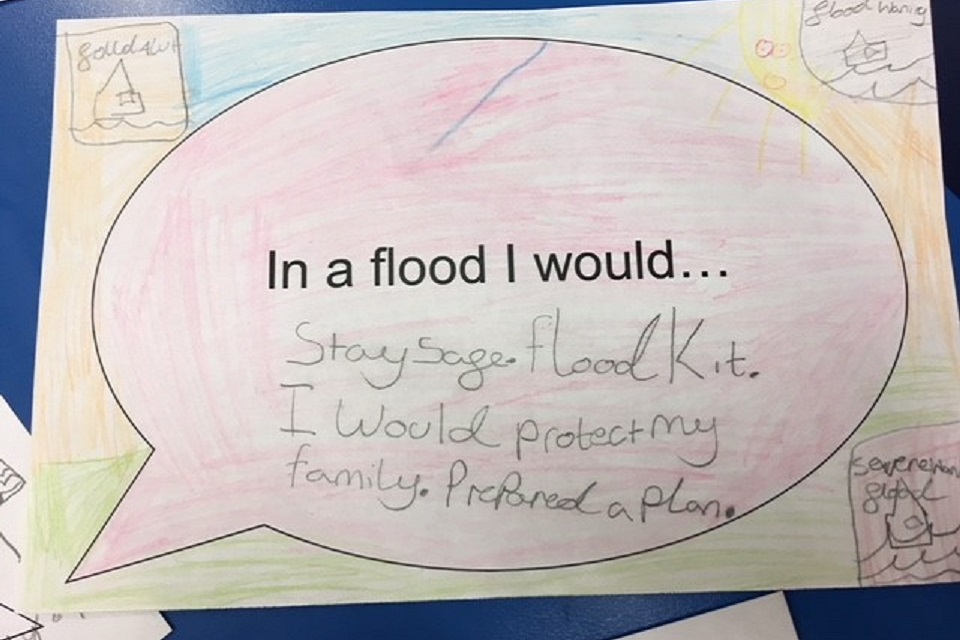 goUd aLut
flood waning
In a flood I would...
Stay sage. flood Kit.
I Would protect my
family. Prepared a plan.
severe
flood